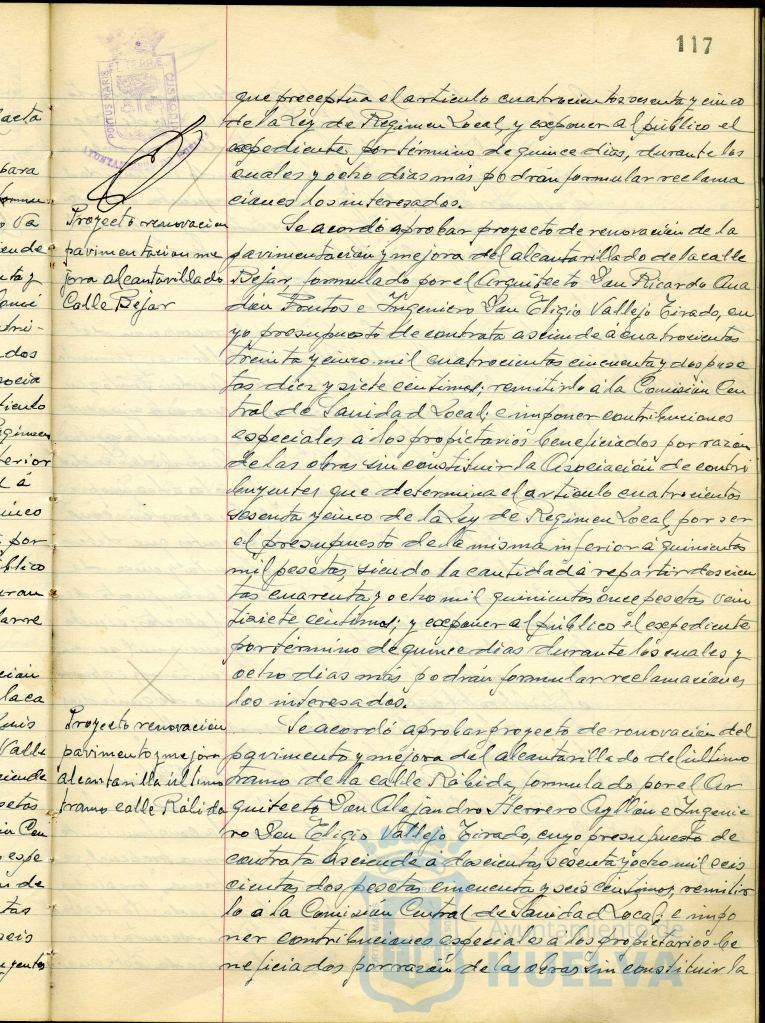 117
PORTUS MARIS
ET TERRAE
CUSTODIA
que preceptúa el artículo cuatrocientos sesenta y cinco
de la Ley de Regimen Local, y exponer al público el
expediente por término de quince dias, durante los
cuales y ocho dias mas podrán formular reclama
ciones los interesados.
Proyecto renovacion
pavimentacion me
jora alcantarillado
Calle Bejar
Se acordó aprobar proyecto de renovación de la
pavimentación y mejora del alcantarillado de la calle
Bejar, formulado por el Arquitecto Don Ricardo Ana
dón Frutos e Ingeniero Don Eligio Vallejo Tirado, cu
yo presupuesto de contrata asciende á cuatrocientas
treinta y cinco mil cuatrocientas cincuenta y dos pese
tas diez y siete centimos; remitirlo á la Comisión Cen
tral de Sanidad Local; e imponer contribuciones
especiales á los propietarios beneficiados por razón
de las obras sin constituir la Asociación de contri
buyentes que determina el artículo cuatrocientos
sesenta y cinco de la Ley de Regimen Local, por ser
el presupuesto de la misma inferior á quinientas
mil pesetas, siendo la cantidad á repartir doscien
tas cuarenta y ocho mil quinientas once pesetas vein
tisiete centimos; y exponer al público el expediente
por término de quince dias durante los cuales y
ocho dias más podrán formular reclamaciones
los interesados.
Proyecto renovación
pavimento y mejora
alcantarilla último
tramo calle Rábida
Se acordó aprobar proyecto de renovación del
pavimento y mejora del alcantarillado del último
tramo de la calle Rábida, formulado por el Ar
quitecto Don Alejandro Herrero Ayllón e Ingenie
ro Don Eligio Vallejo Tirado, cuyo presupuesto de
contrata asciende á doscientas sesenta y ocho mil seis
cientas dos pesetas cincuenta y seis centimos, remitir
lo á la Comisión Central de Sanidad Local; e impo
ner contribuciones especiales a los propietarios be
neficiados por razón de las obras sin constituir la
Ayuntamiento de
HUELVA